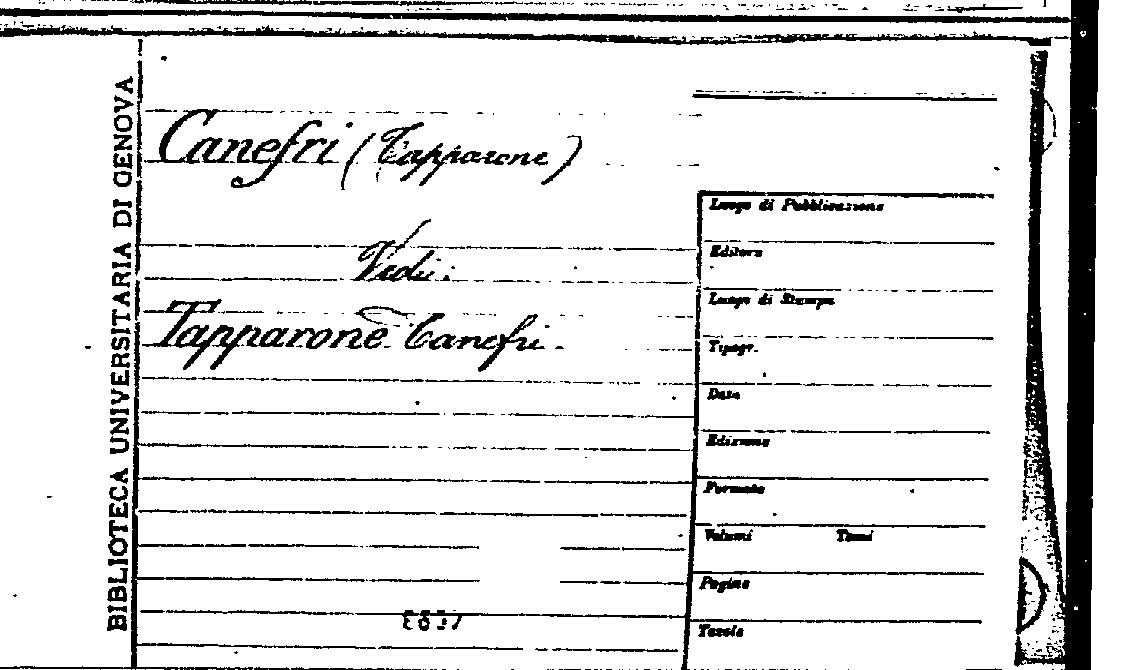 BIBLIOTECA UNIVERSITARIA DI GENOVA
Canefri (Tapparone)
Vedi:
Tapparone Canefri.
Luogo di Pubblicazione
Editore
Luogo di Stampa
Tipogr.
Data
Edizione
Formato
Volumi Tomi
Pagine
Tavole